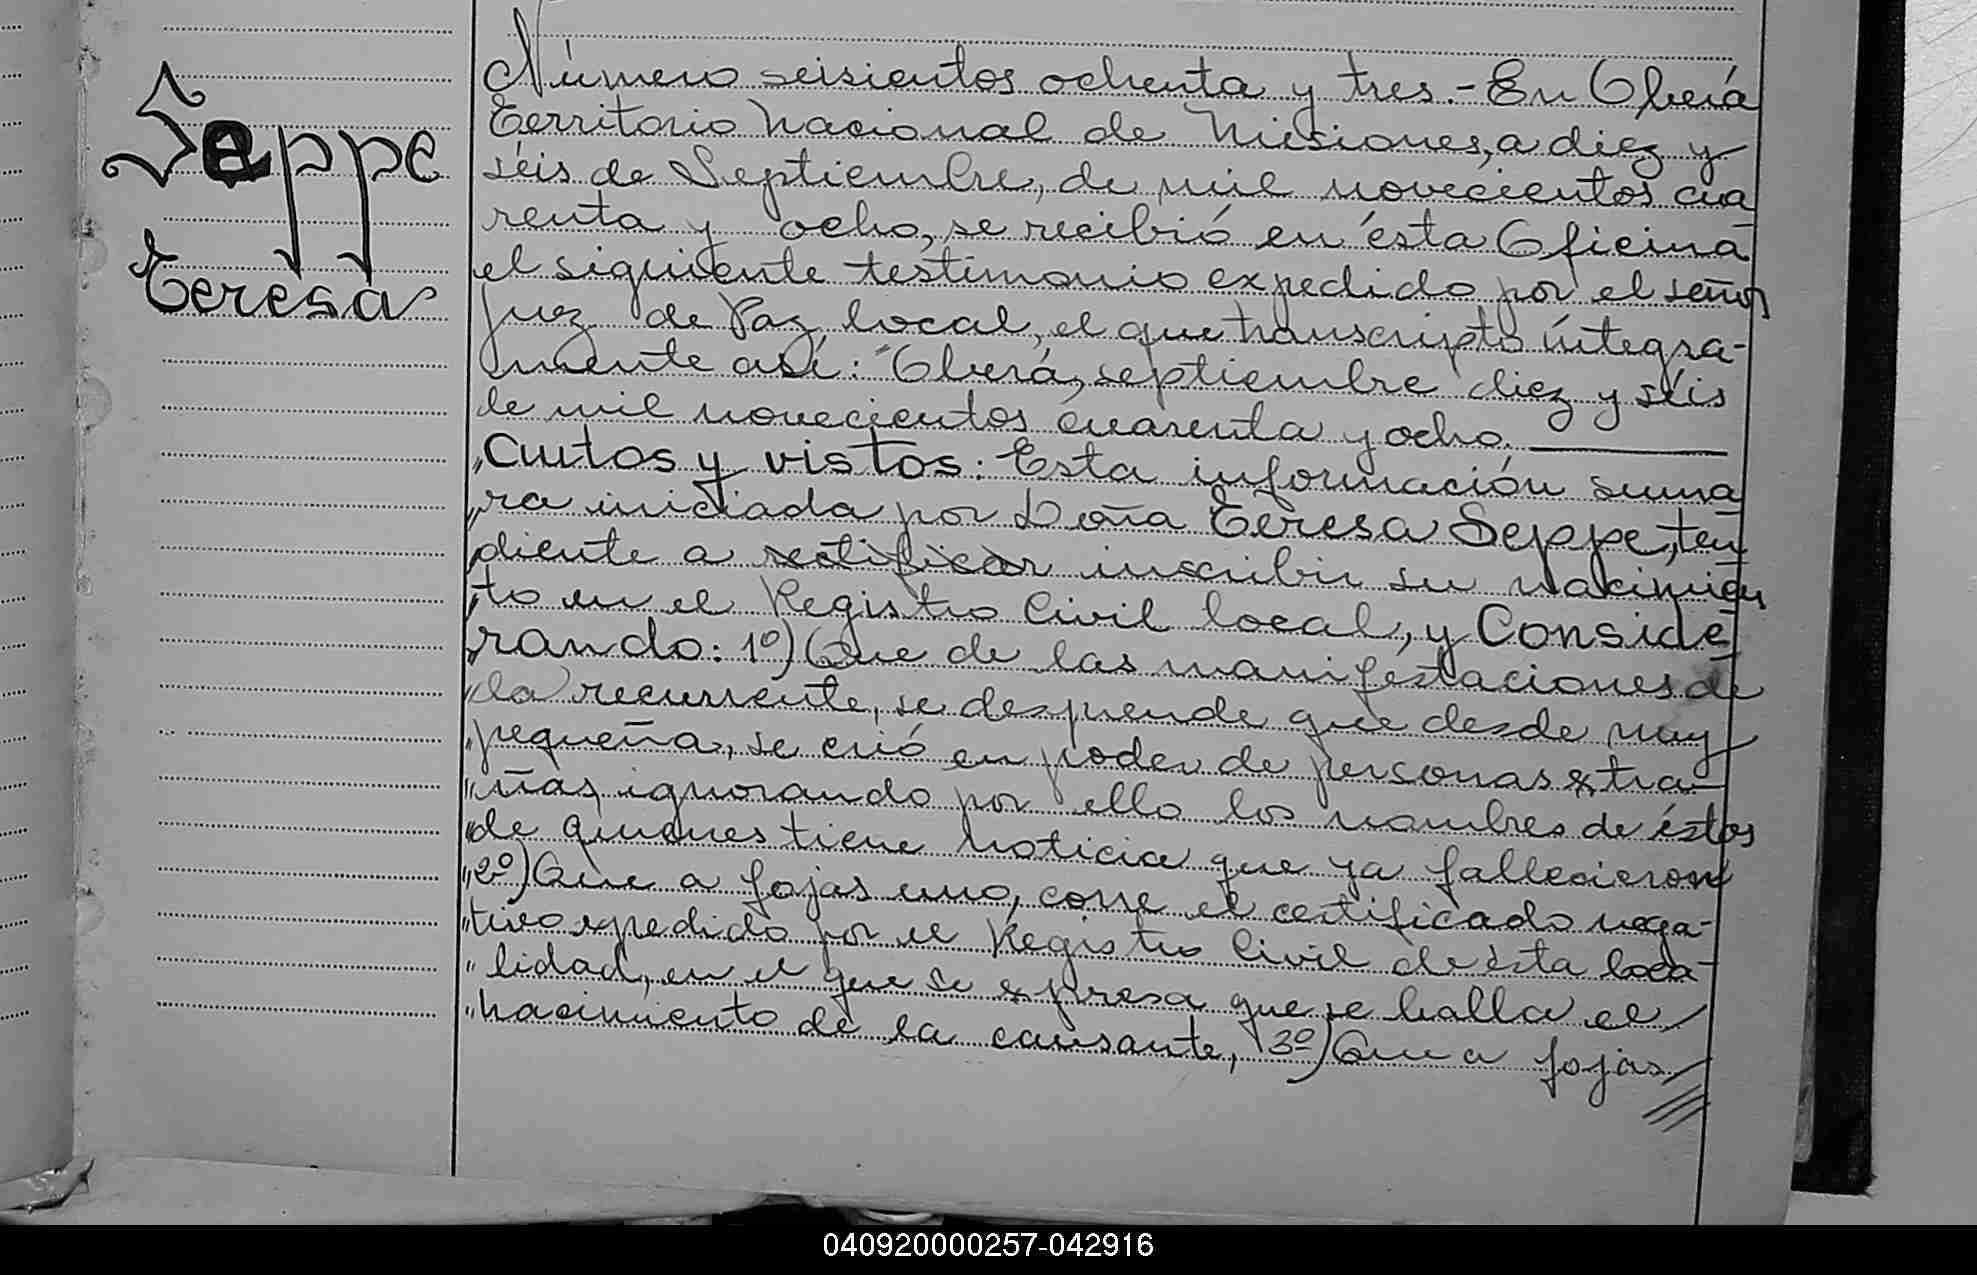 Seppe
Teresa
Número seisientos ochenta y tres.- En Oberá
Territorio Nacional de Misiones, a diez y
séis de Septiembre, de mil novecientos cua
renta y ocho, se recibió en ésta Oficina
el siguiente testimonio expedido por el señor
Juez de Paz local, el que transcripto íntegra-
mente así: "Oberá, septiembre diez y séis
de mil novecientos cuarenta y ocho.
"Autos y vistos: Esta información suma
"ria iniciada por Doña Teresa Seppe, ten
"diente a rectificar inscribir su nacimien
"to en el Registro Civil local, y Conside
"rando: 1º) Que de las manifestaciones de
"la recurrente, se desprende que desde muy
"pequeña, se crió en poder de personas extra-
"ñas, ignorando por ello los nombres de éstos
"de quienes tiene noticia que ya fallecieron
"2º) Que a fojas uno, corre el certificado nega-
"tivo expedido por el Registro Civil de ésta loca-
"lidad, en el que se expresa que se halla el
"nacimiento de la causante, 3º) Que a fojas
040920000257-042916